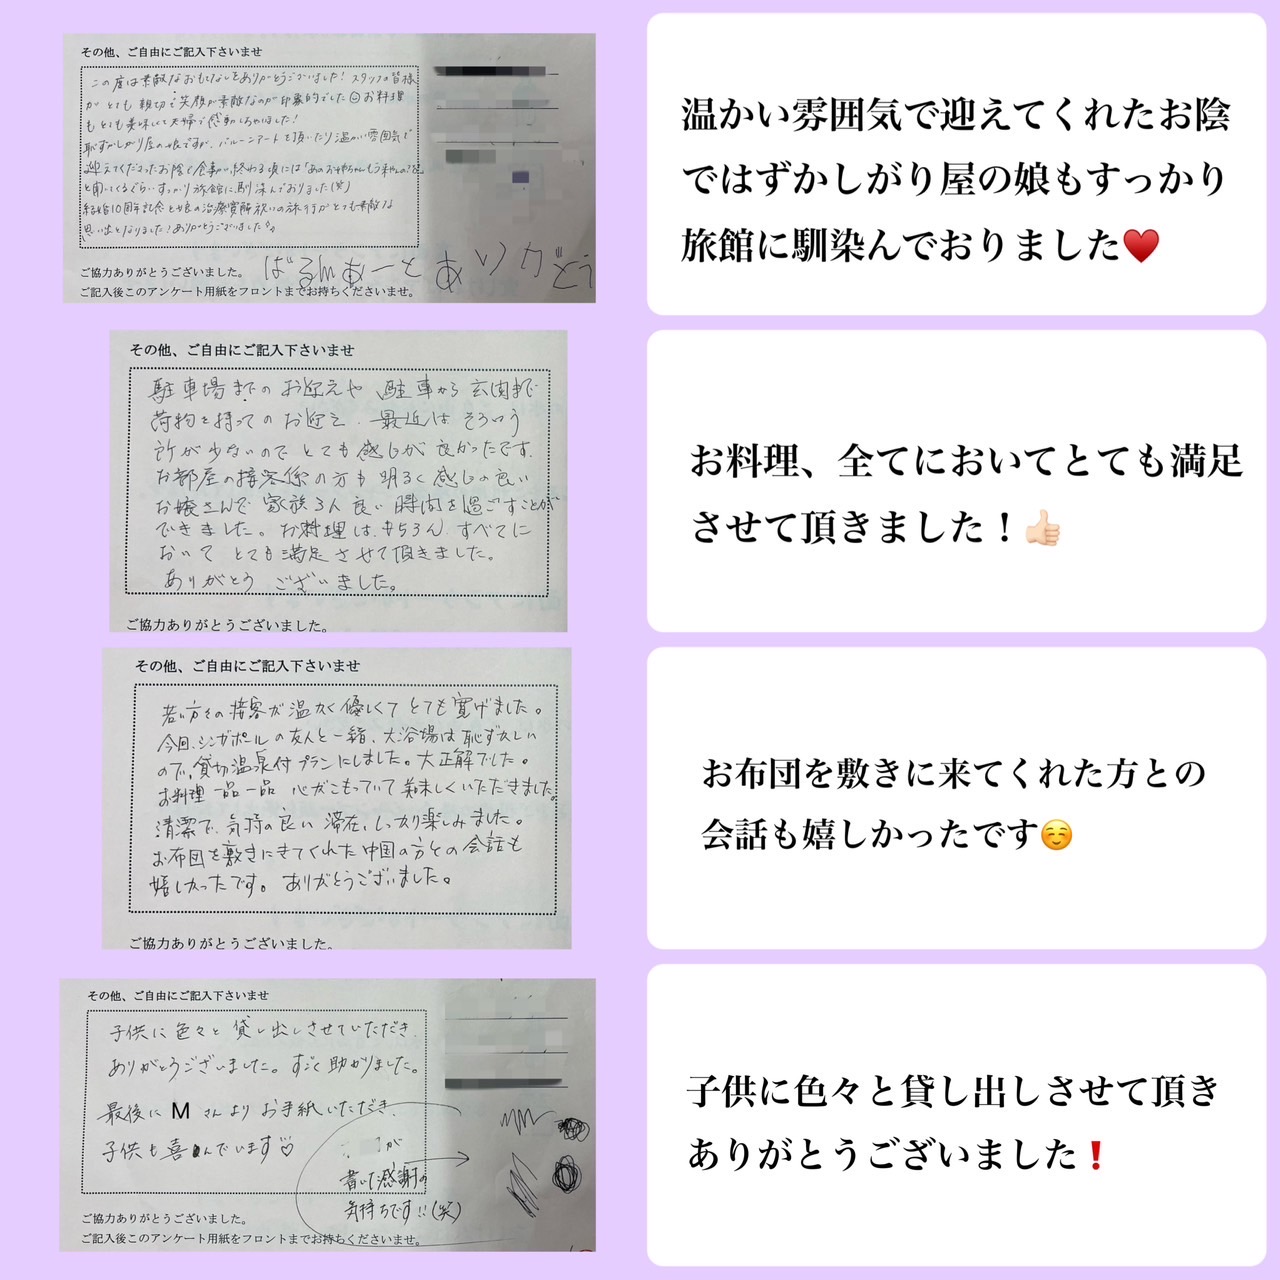 その他、ご自由にご記入下さいませ
この度は素敵なおもてなしをありがとうございました！スタッフの皆様
がとても親切で笑顔が素敵なのが印象的でした☺お料理
もとても美味しくて夫婦で感動しちゃいました！
恥ずかしがり屋の娘ですが、バルーンアートを頂いたり温かい雰囲気で
迎えてくださったお陰で食事が終わる頃には「あのおねえちゃんもう来ないの？」
と聞いてくるぐらいすっかり旅館に馴染んでおりました(笑)
結婚10周年記念と娘の治療寛解祝いの旅行がとても素敵な
思い出となりました！ありがとうございました。
ご協力ありがとうございました。
ばるんあーとありがとう
ご記入後このアンケート用紙をフロントまでお持ちくださいませ。
温かい雰囲気で迎えてくれたお陰
ではずかしがり屋の娘もすっかり
旅館に馴染んでおりました♥️
その他、ご自由にご記入下さいませ
駐車場までのお迎えや、駐車から玄関まで
荷物を持ってのお迎え、最近はそういう
所が少ないので とても感じが良かったです。
お部屋の接客係の方も明るく感じの良い
お嬢さんで 家族3人良い時間を過ごすことが
できました。お料理はもちろん、すべてに
おいて とても満足させて頂きました。
ありがとう ございました。
ご協力ありがとうございました。
お料理、全てにおいてとても満足
させて頂きました！👍🏻
その他、ご自由にご記入下さいませ
若い方々の接客が温かく優しくてとても寛げました。
今回、シンガポールの友人と一緒、大浴場は恥ずかしい
ので、貸切温泉付プランにしました。大正解でした。
お料理 一品一品 心がこもっていて美味しくいただきました。
清潔で、気持の良い滞在、しっかり楽しみました。
お布団を敷きにきてくれた中国の方との会話も
嬉しかったです。ありがとうございました。
ご協力ありがとうございました。
お布団を敷きに来てくれた方との
会話も嬉しかったです☺️
その他、ご自由にご記入下さいませ
子供に色々と貸し出しさせていただき、
ありがとうございました。すごく助かりました。
最後にMさんよりお手紙いただき、
子供も喜んでいます♡
が
書いた感謝の
気持ちです!!(笑)
ご協力ありがとうございました。
ご記入後このアンケート用紙をフロントまでお持ちくださいませ。
子供に色々と貸し出しさせて頂き
ありがとうございました❗